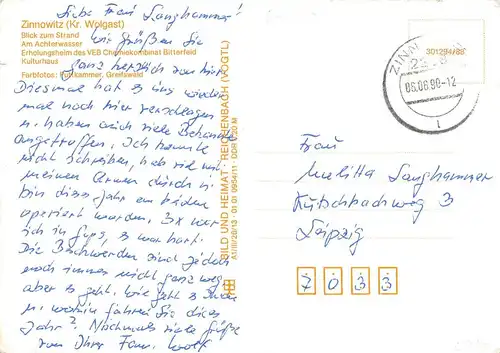 Liebe Frau Langhammer!
Zinnowitz (Kr. Wolgast)
Blick zum Strand
Am Achterwasser
Erholungsheim des VEB Chemiekombinat Bitterfeld
Kulturhaus
Farbfotos: Puttkammer, Greifswald
wir grüßen Sie
ganz herzlich von hier
Diesmal hat es uns wieder
mal nach hier verschlagen
u. haben auch viele Bekannte
angetroffen. Ich konnte
nicht schreiben, hab viel mit
meinen Armen durch u.
bin dieses Jahr an beiden
operiert worden. 3x war
ich in Gips, es war hart.
Die Beschwerden sind jedoch
noch immer nicht ganz weg,
aber es geht. Wie geht es Ihnen
u. wohin fahren Sie dies
Jahr? Nochmals viele Grüße
von Ihrer Fam. Wolf
BILD UND HEIMAT · REICHENBACH (VOGTL)
A1/III/26/13 · 01 01 0954/11 · DDR 0,20 M
301294/88
05.06.90-12
1
Frau
Melitta Langhammer
Kutschbachweg 3
Leipzig
7033